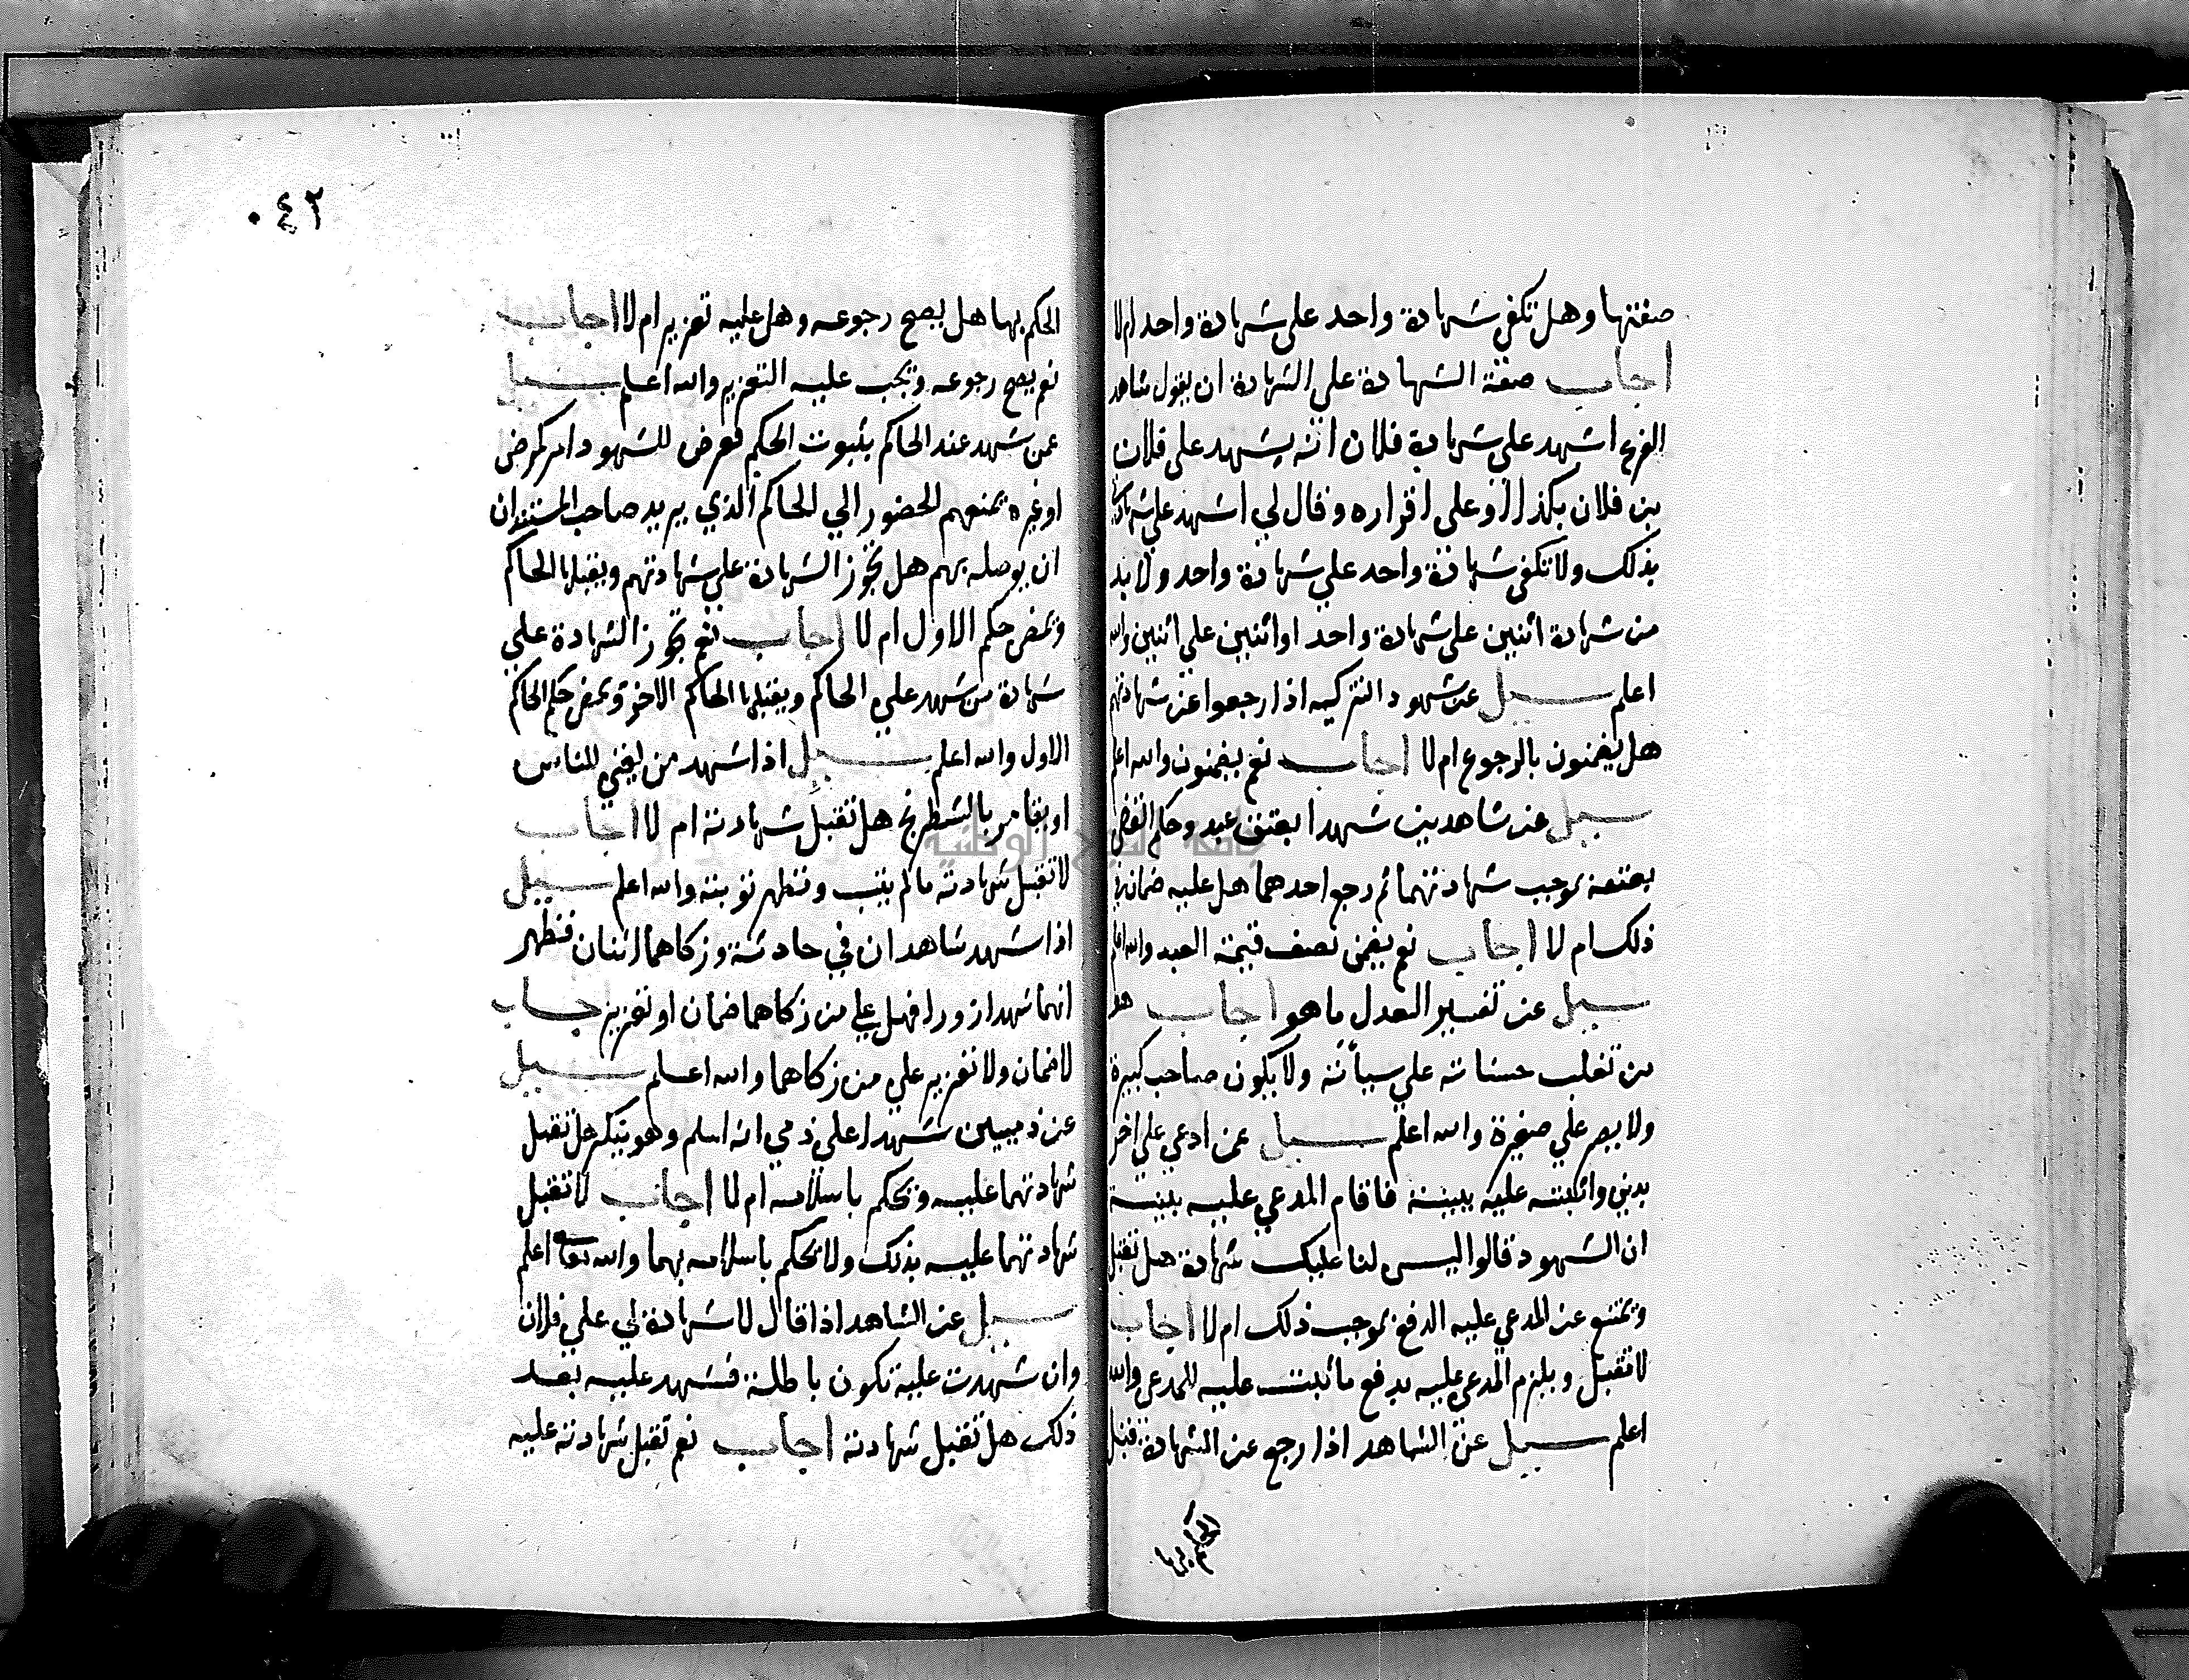 صفتها وهل تكفي شهادة واحد على شهادة واحد ام لا
اجاب صفة الشهادة على الشهادة ان يقول شاهد
الفرع اشهد على شهادة فلان انه يشهد على فلان
بن فلان بكذا او على اقراره وقال لي اشهد على شهادتي
بذلك ولا تكفي شهادة واحد علي شهادة واحد ولا بد
من شهادة اثنين على شهادة واحد او اثنين علي اثنين والله
اعلم سيل عن شهود التزكيه اذا رجعوا عن شهادتهم
هل يضمنون بالرجوع ام لا اجاب نعم يضمنون والله اعلم
سيل عن شاهدين شهدا بعتق عبد وحكم القاضي
بعتقه بموجب شهادتهما ثم رجع احدهما هل عليه ضمان في
ذلك ام لا اجاب نعم يضمن نصف قيمة العبد والله اعلم
سيل عن تفسير العدل ما هو اجاب هو
من تغلب حسناته علي سيأته ولا يكون صاحب كبيرة
ولا يصر علي صغيرة والله اعلم سيل عمن ادعي علي اخر
بدين واثبته عليه ببينة فاقام المدعي عليه بينة
ان الشهود قالوا ليس لنا عليك شهادة هل تقبل
ويمتنع عن المدعي عليه الدفع بموجب ذلك ام لا اجاب
لا تقبل ويلزم المدعي عليه بدفع ما ثبت عليه للمدعي والله
اعلم سيل عن الشاهد اذا رجع عن الشهادة قبل
الحكم بها
٠٤٢
الحكم بها هل يصح رجوعه وهل عليه تعزير ام لا اجاب
نعم يصح رجوعه ويجب عليه التعزير والله اعلم سيل
عمن شهد عند الحاكم بثبوت الحكم فعرض للشهود امر كمرض
او غيره يمنعهم الحضور الي الحاكم الذي يريد صاحب المستند ان
ان يوصله بهم هل تجوز الشهادة علي شهادتهم ويقبلها الحاكم
ويمضي حكم الاول ام لا اجاب نعم تجوز الشهادة علي
شهادة من شهد علي الحاكم ويقبلها الحاكم الاخر ويمضي حكم الحاكم
الاول والله اعلم سيل اذا شهد من يغني للناس
او يقامر بالشطرنج هل تقبل شهادته ام لا اجاب
لا تقبل شهادته ما لم يتب وتظهر توبته والله اعلم سيل
اذا شهد شاهدان في حادثة وزكاهما اثنان فظهر
انهما شهدا زورا فهل علي من زكاهما ضمان او تعزير اجاب
لا ضمان ولا تعزير علي من زكاهما والله اعلم سيل
عن ذميين شهدا على ذمي انه اسلم وهو ينكر هل تقبل
شهادتهما عليه ويحكم باسلامه ام لا اجاب لا تقبل
شهادتهما عليه بذلك ولا يحكم باسلامه بهما والله تعالى اعلم
سيل عن الشاهد اذا قال لا شهادة لي علي فلان
وان شهدت عليه تكون باطلة فشهد عليه بعد
ذلك هل تقبل شهادته اجاب نعم تقبل شهادته عليه
جامعة النجاح الوطنية